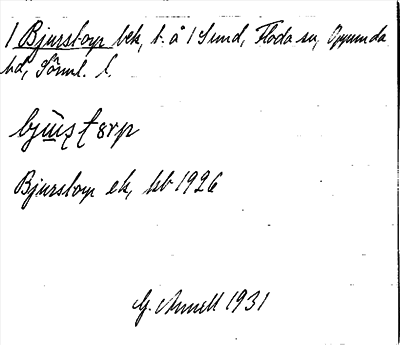 1 Bjurstorp bek, t. å 1 Sund, Floda sn, Oppunda
hd, Sörml. l.
Bjurstorp ek, kb 1926
G. Annell 1931